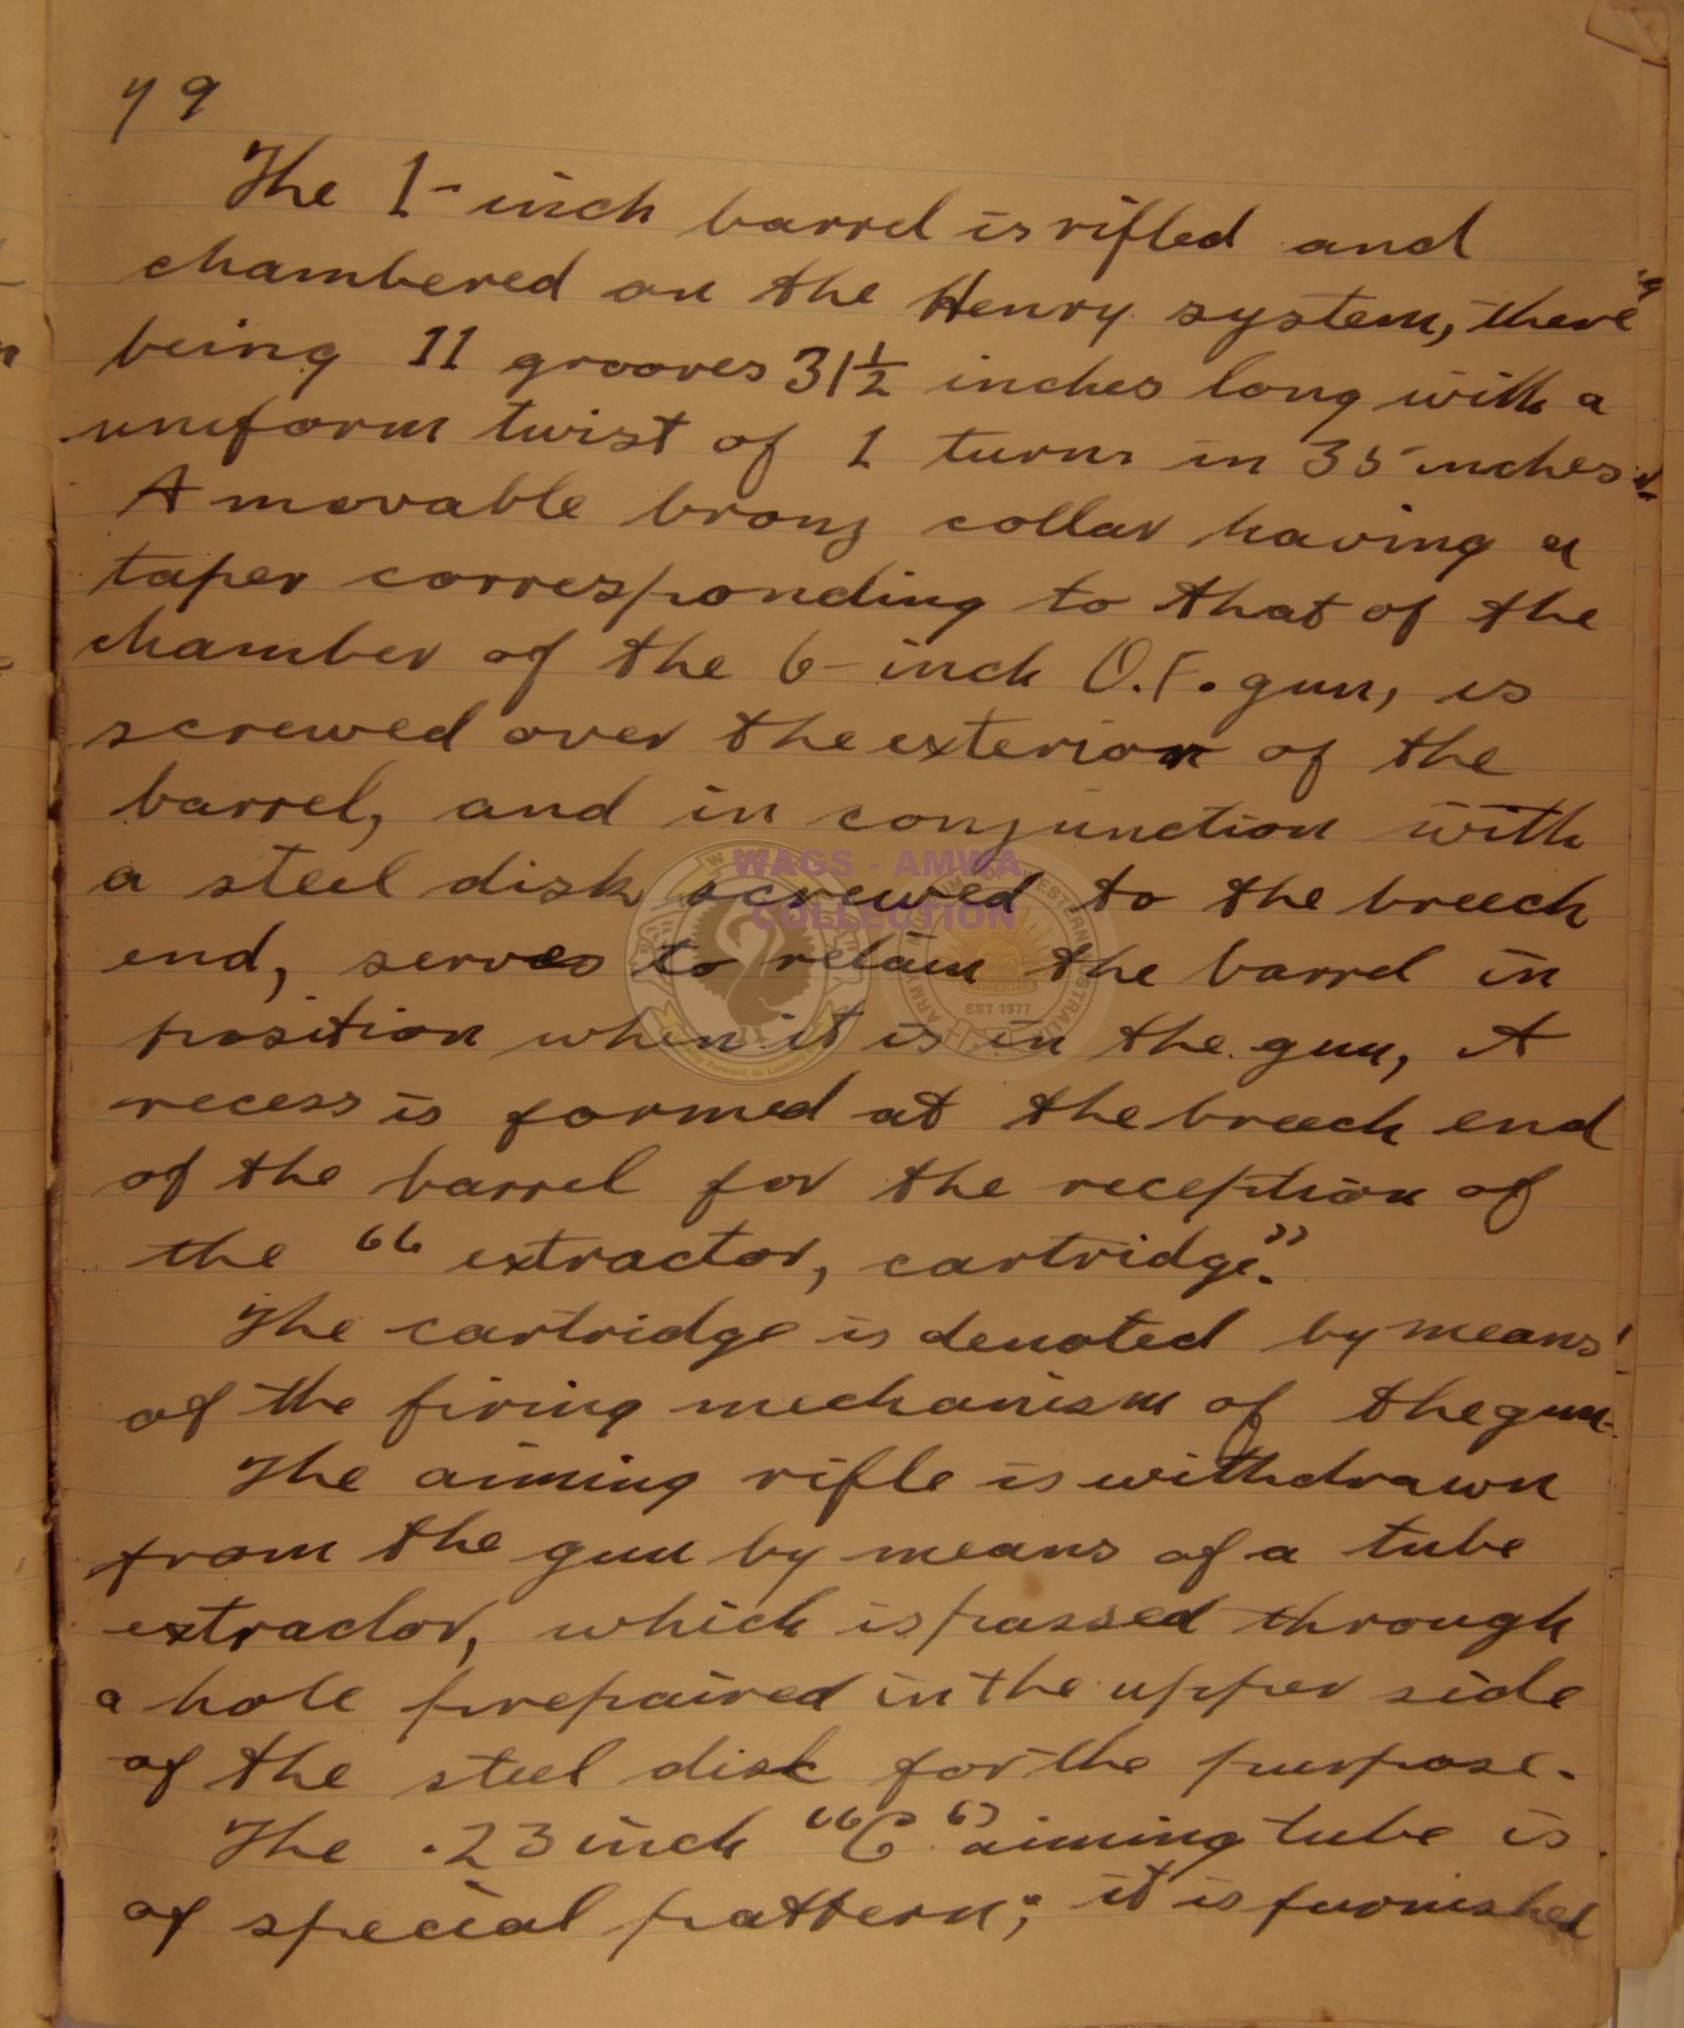 79
The 1-inch barrel is rifled and
chambered on the Henry system, there
being 11 grooves 31½ inches long with a
uniform twist of 1 turn in 35 inches.
A movable bronz collar having a
taper corresponding to that of the
chamber of the 6-inch Q.F. gun, is
screwed over the exterior of the
barrel, and in conjunction with
a steel disk screwed to the breech
end, serves to retain the barrel in
position when it is in the gun, A
recess is formed at the breech end
of the barrel for the reception of
the "extractor, cartridge."
The cartridge is denoted by means
of the firing mechanism of the gun.
The aiming rifle is withdrawn
from the gun by means of a tube
extractor, which is passed through
a hole prepaired in the upper side
of the steel disk for the purpose.
The .23 inch "C" aiming tube is
of special pattern; it is furnished
WAGS - AMWA
COLLECTION
EST 1977